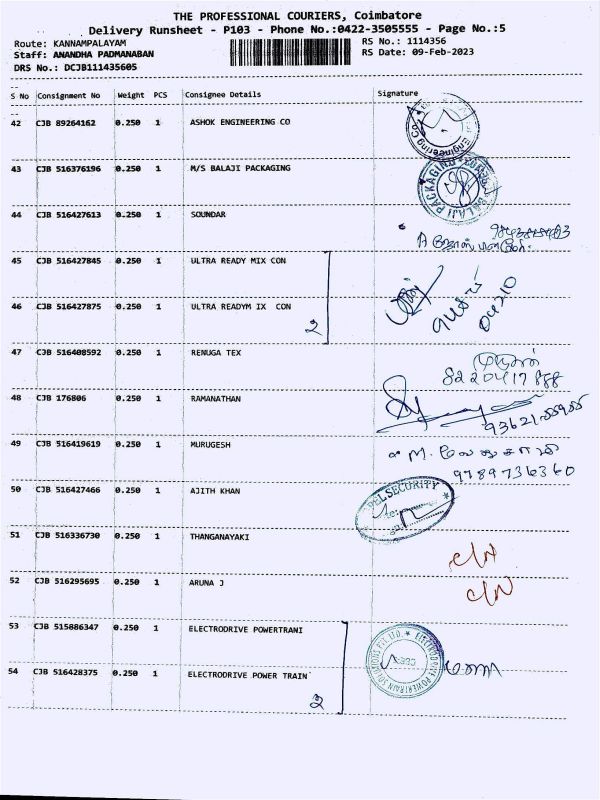 THE PROFESSIONAL COURIERS, Coimbatore
Delivery Runsheet - P103 - Phone No.:0422-3505555 - Page No.:5
Route: KANNAMPALAYAM RS No.: 1114356
Staff: ANANDHA PADMANABAN RS Date: 09-Feb-2023
DRS No.: DCJB111435605
S No Consignment No Weight PCS Consignee Details Signature
42 CJB 89264162 0.250 1 ASHOK ENGINEERING CO
Engineering Co
43 CJB 516376196 0.250 1 M/S BALAJI PACKAGING
BALAJI PACKAGING
44 CJB 516427613 0.250 1 SOUNDAR
45 CJB 516427845 0.250 1 ULTRA READY MIX CON
46 CJB 516427875 0.250 1 ULTRA READYM IX CON
2
04210
47 CJB 516408592 0.250 1 RENUGA TEX
முருகன்
48 CJB 176806 0.250 1 RAMANATHAN
49 CJB 516419619 0.250 1 MURUGESH
9789736360
50 CJB 516427466 0.250 1 AJITH KHAN
SECURITY
51 CJB 516336730 0.250 1 THANGANAYAKI
C/N
52 CJB 516295695 0.250 1 ARUNA J
C/N
53 CJB 515886347 0.250 1 ELECTRODRIVE POWERTRANI
ELECTRODRIVE POWERTRAIN SOLUTIONS PVT LTD. *
54 CJB 516428375 0.250 1 ELECTRODRIVE POWER TRAIN
2